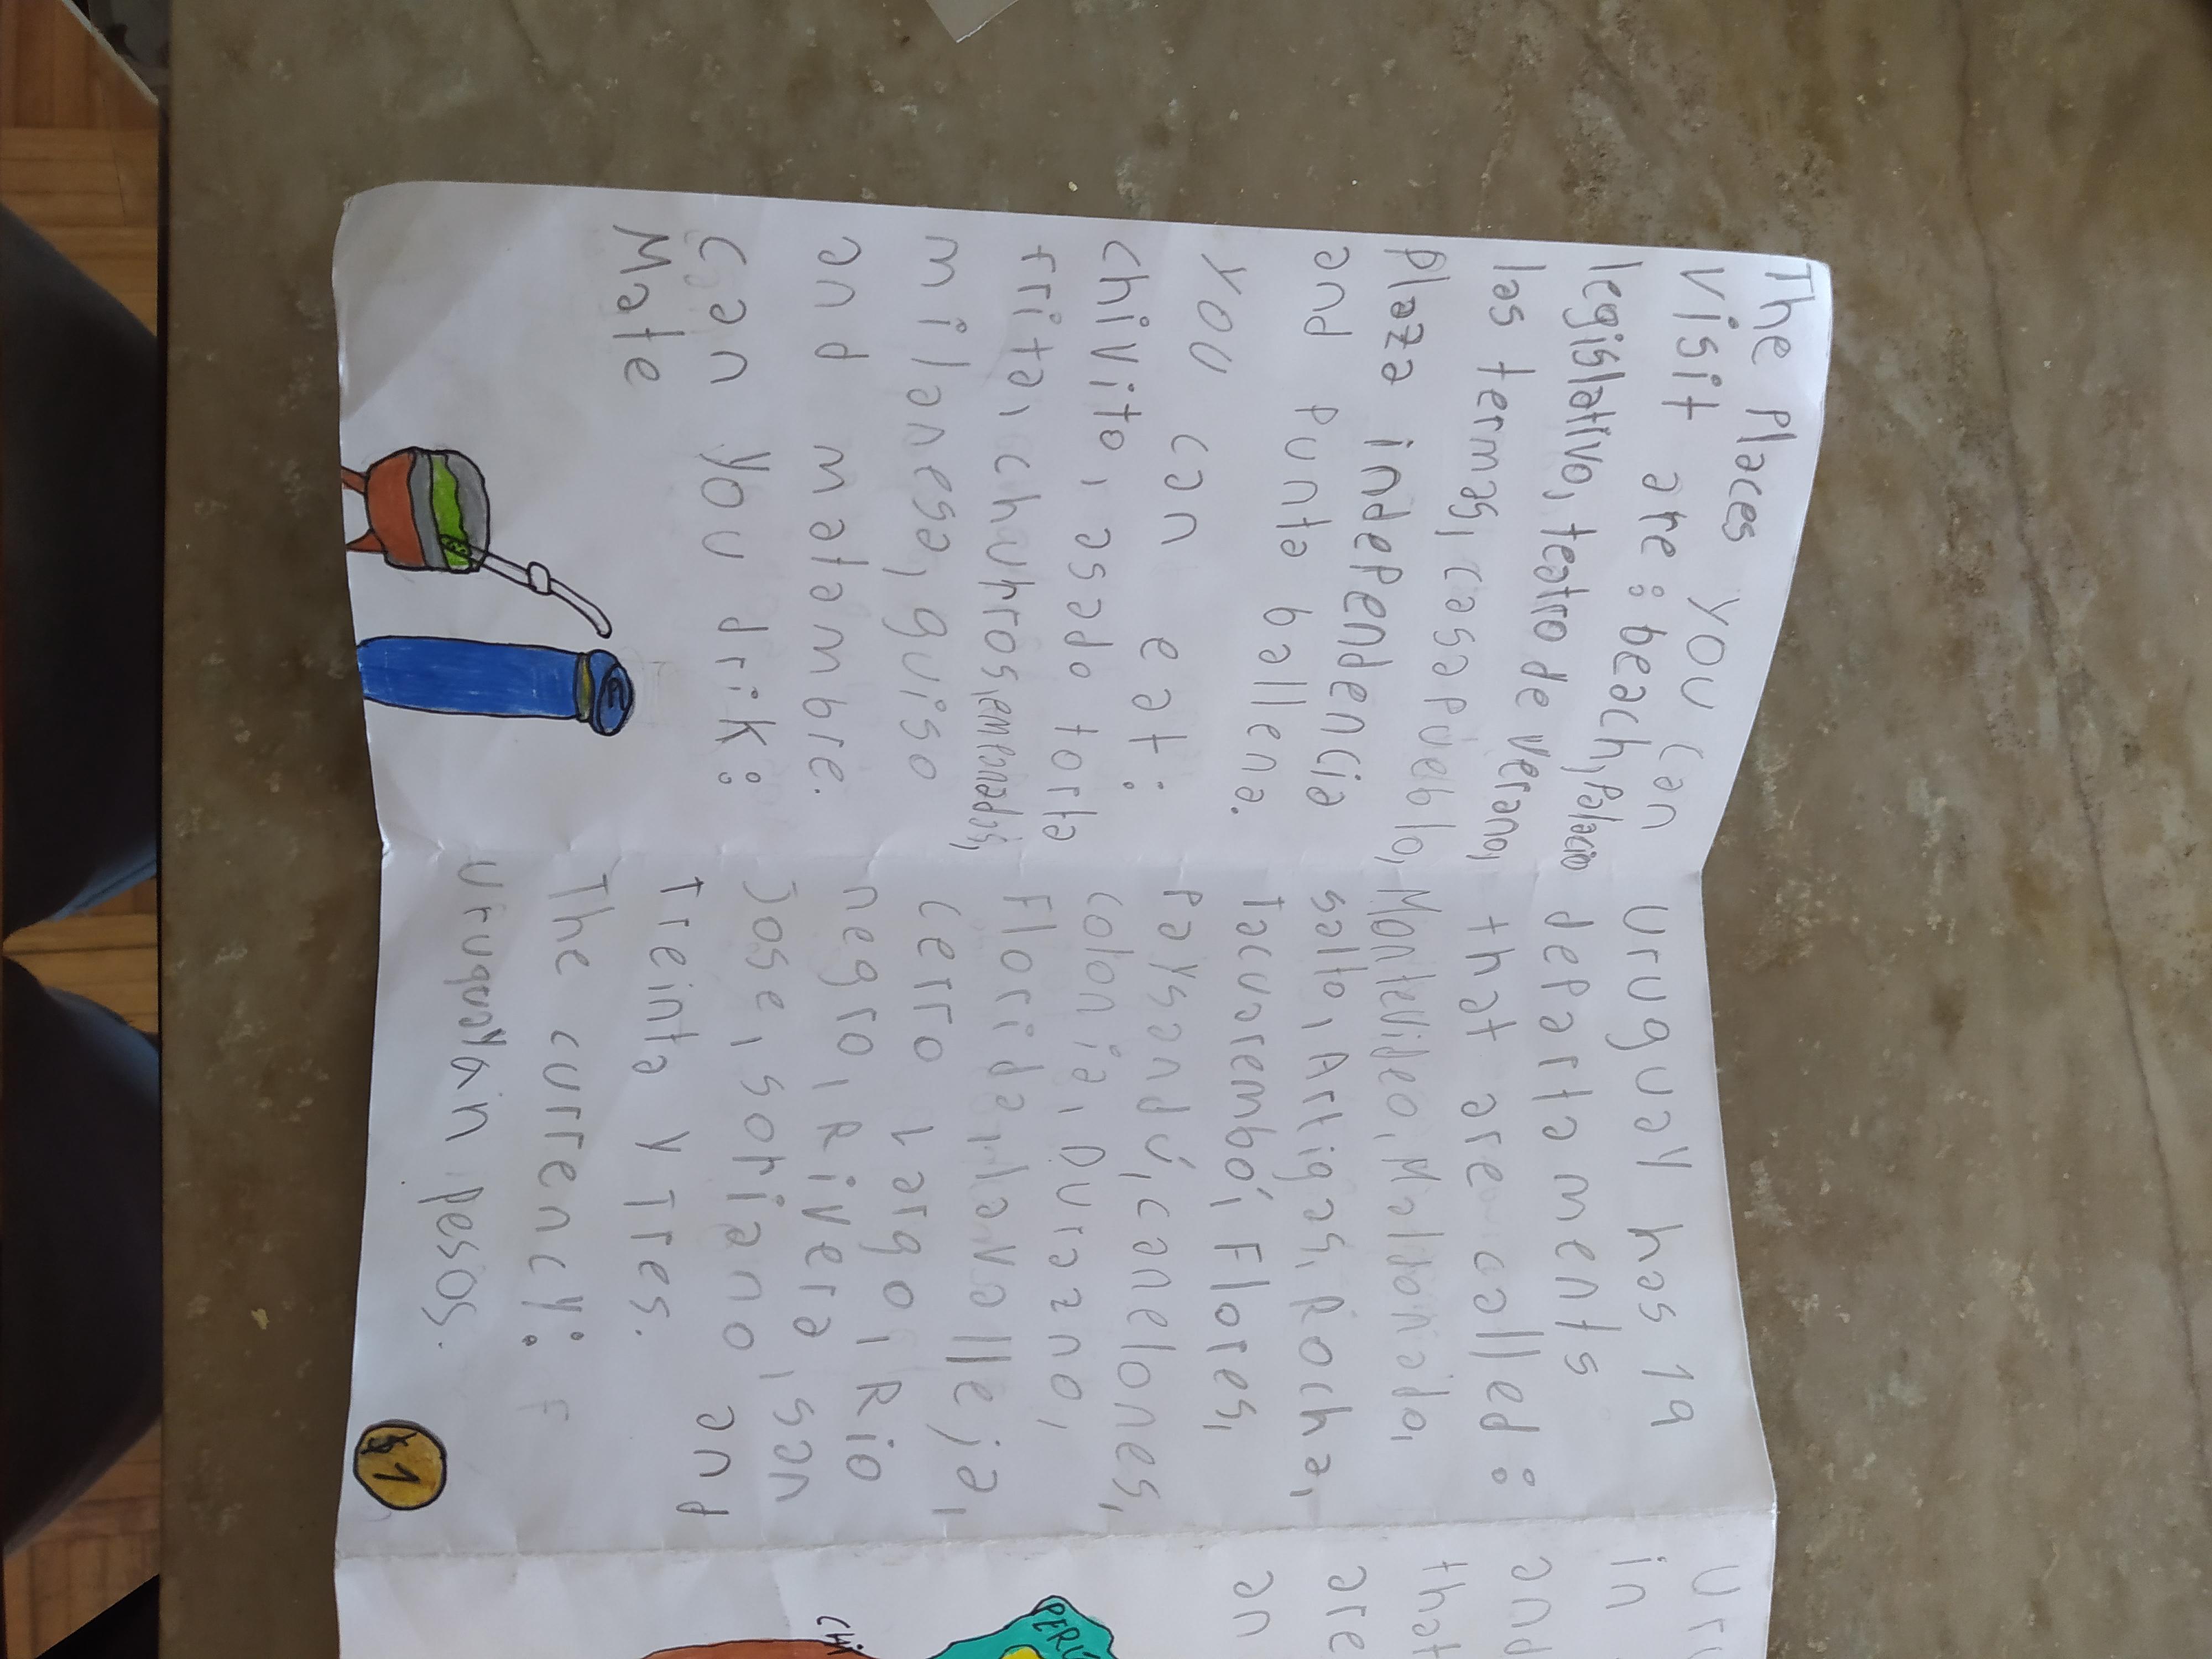 The Places you can
visit are: beach, Palacio
legislativo, teatro de verano,
las termas, casapueblo,
plaza independencia
and Punta ballena.
you can eat:
chivito, asado torta
frita, churros, empanadas,
milanesa, guiso
and matambre.
Can you drik:
Mate
Uruguay has 19
departaments
that are called:
Montevideo, Maldonado,
salto, Artigas, Rocha,
Tacuarembó, Flores,
Paysandú, canelones,
colonia, Durazno,
Florida, lavalleja,
cerro Largo, Rio
negro, Rivera, san
Jose, soriano and
Treinta y Tres.
The currency:
uruguayain pesos.
$1
Uru
in
and
that
are
an
PERÚ
Chi